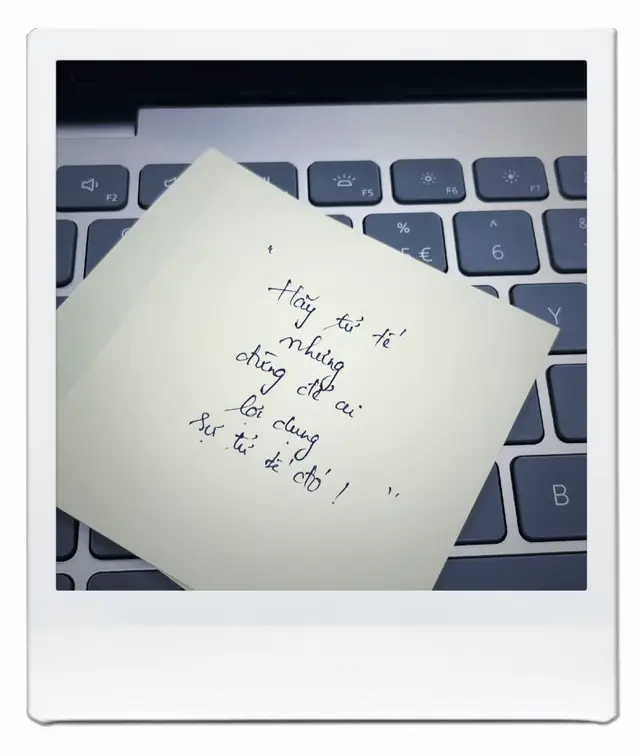 F2
F5
F6
F7
%
5 €
^
6
&
Y
B
"
Hãy tử tế
nhưng
đừng để ai
lợi dụng
sự tử tế đó !
"